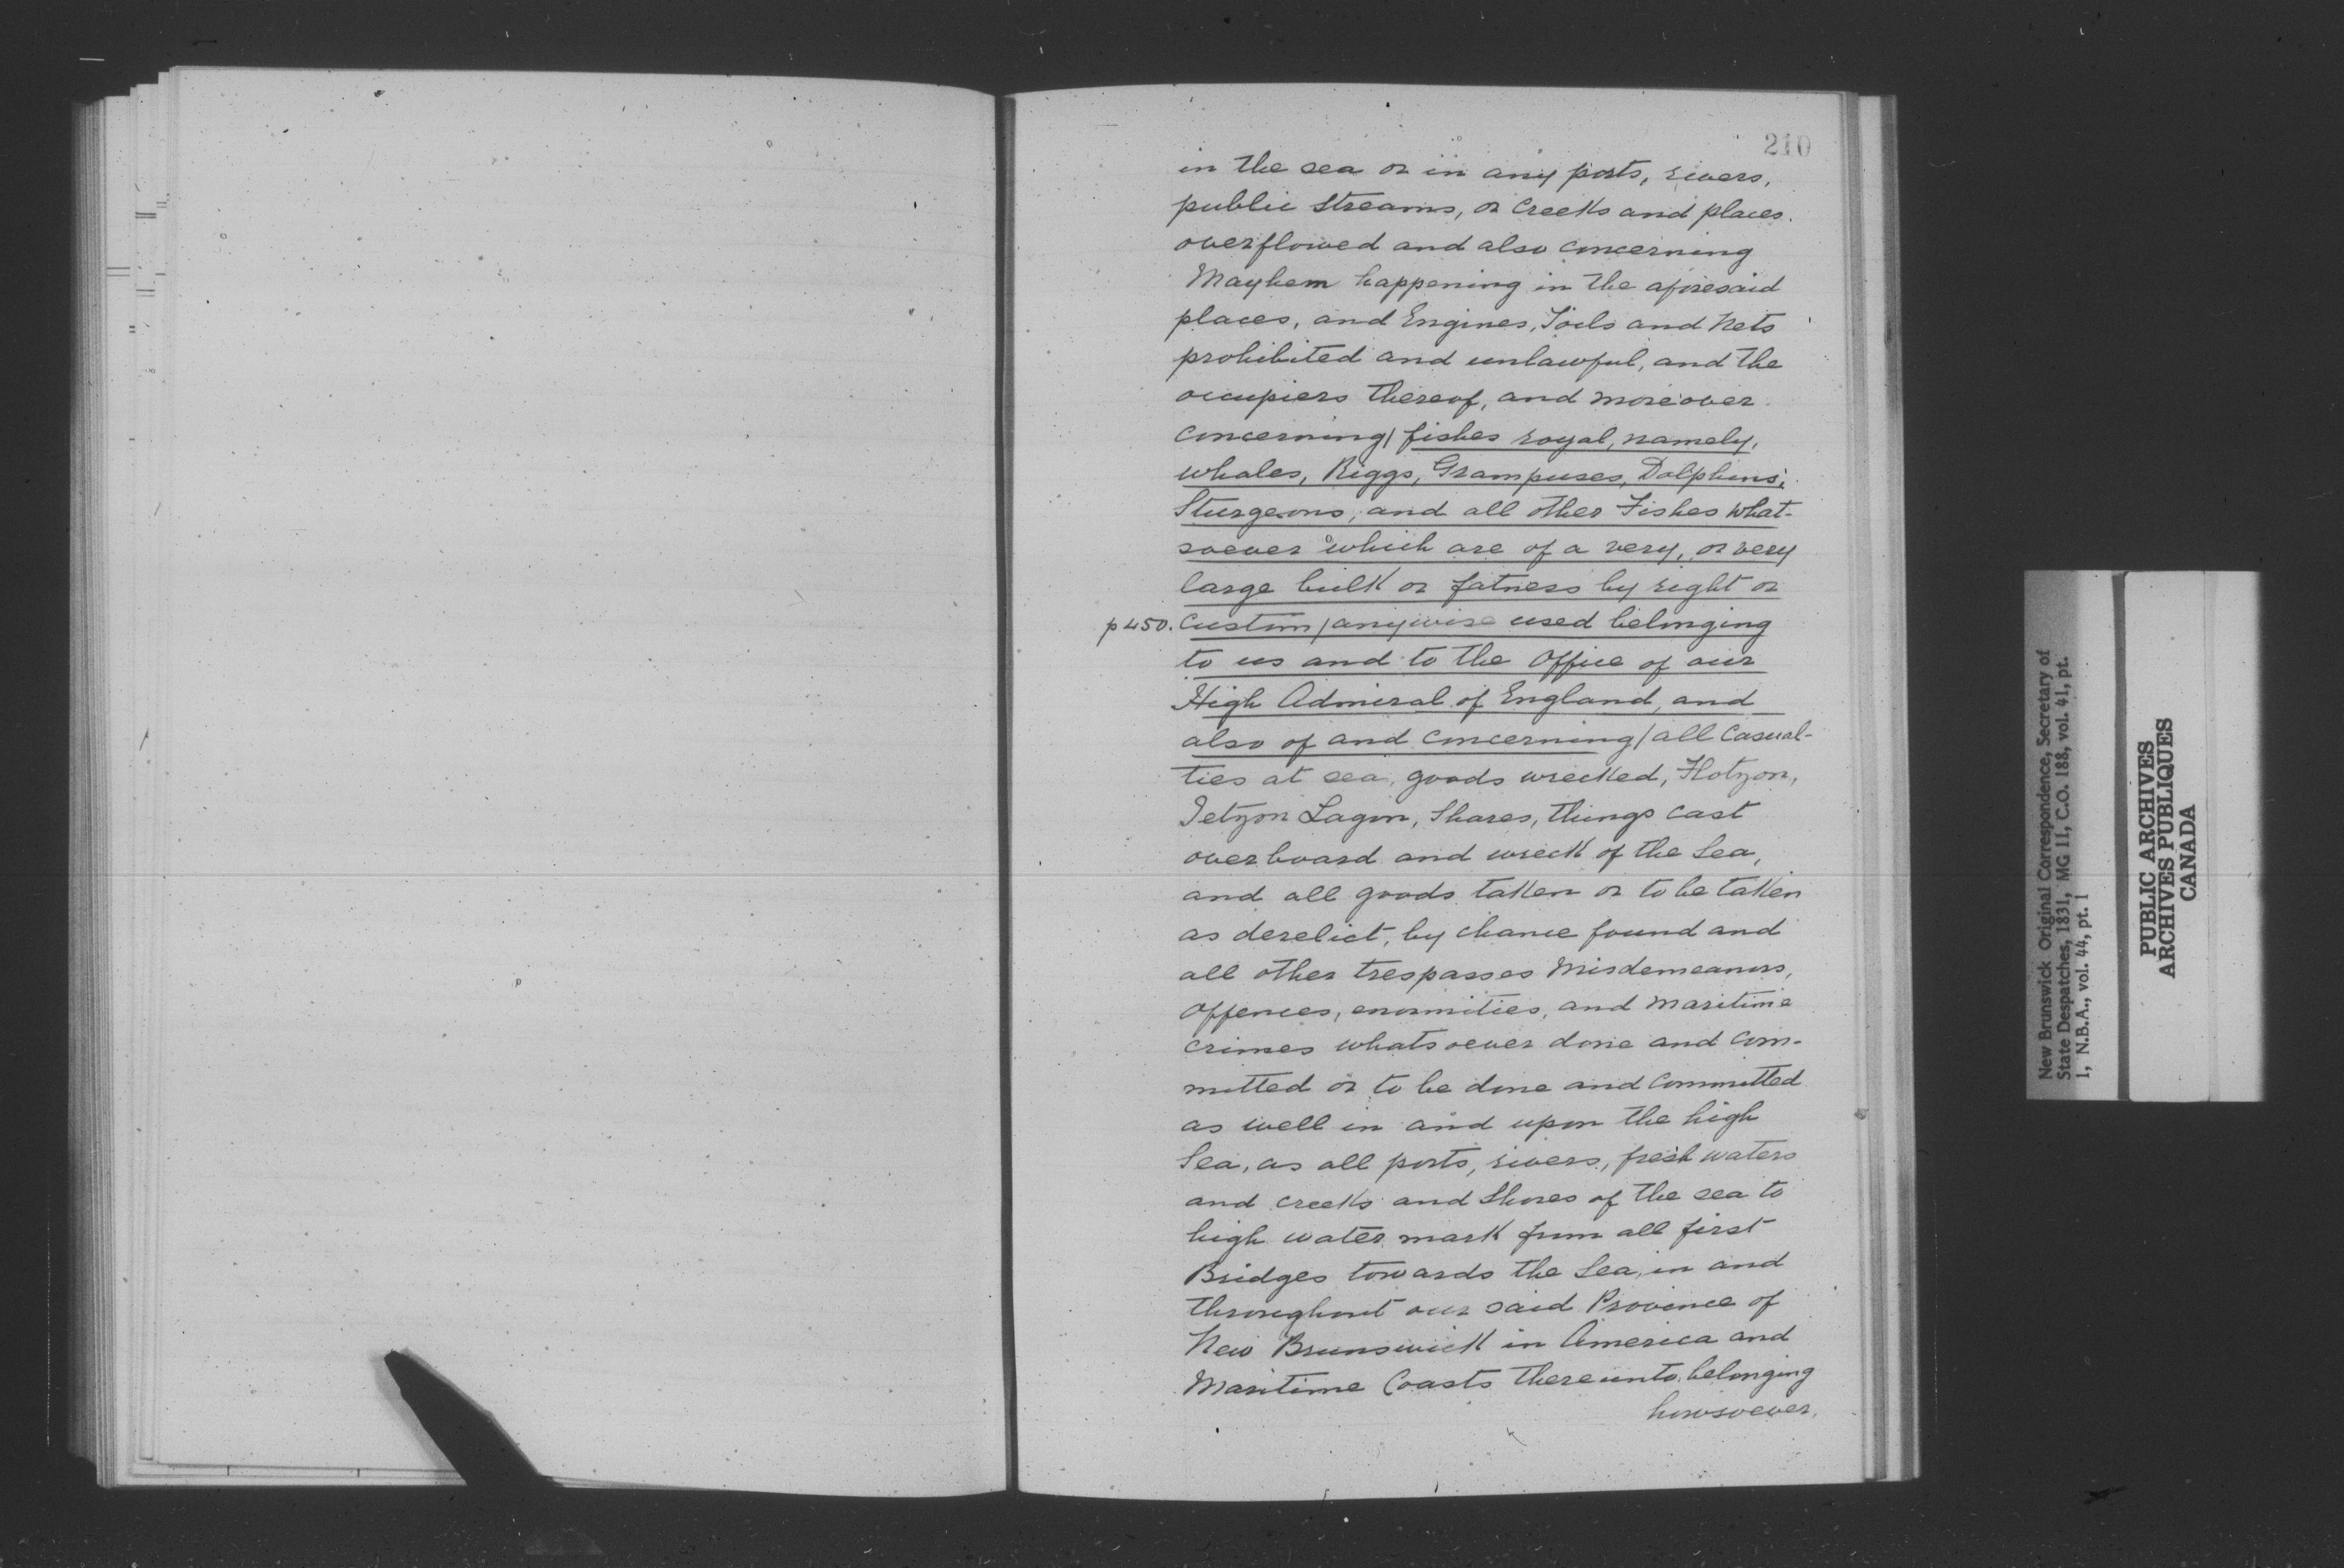 210
in the sea or in any ports, rivers,
public streams, or creeks and places.
overflowed and also concerning
Mayhem happening in the aforesaid
places, and Engines, Toils and Nets
prohibited and unlawful, and the
occupiers thereof, and moreover
concerning/ fishes royal, namely,
whales, Riggs, Grampuses, Dolphins,
Sturgeons, and all other Fishes what-
soever which are of a very, or very
large bulk or fatness by right or
p450. Custom/anywise used belonging
to us and to the Office of our
High Admiral of England, and
also of and concerning/all Casual-
ties at sea, goods wrecked, Flotzon,
Jetzon Lagon, Shares, things cast
overboard and wreck of the Sea,
and all goods taken or to be taken
as derelict, by chance found and
all other trespasses Misdemeanors,
offences, enormities, and maritime
crimes whatsoever done and com-
mitted or to be done and committed
as well in and upon the high
Sea, as all ports, rivers, fresh waters
and creeks and Shores of the sea to
high water mark from all first
Bridges towards the Sea, in and
throughout our said Province of
New Brunswick in America and
Maritime Coasts thereunto belonging
howsoever.
New Brunswick Original Correspondence, Secretary of
State Despatches, 1831, MG 11, C.O. 188, vol. 41, pt.
1, N.B.A., vol. 44, pt. 1
PUBLIC ARCHIVES
ARCHIVES PUBLIQUES
CANADA